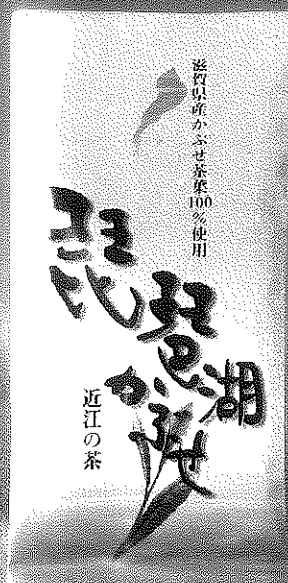 滋賀県産かぶせ茶葉100%使用
琵琶湖
かぶせ
近江の茶